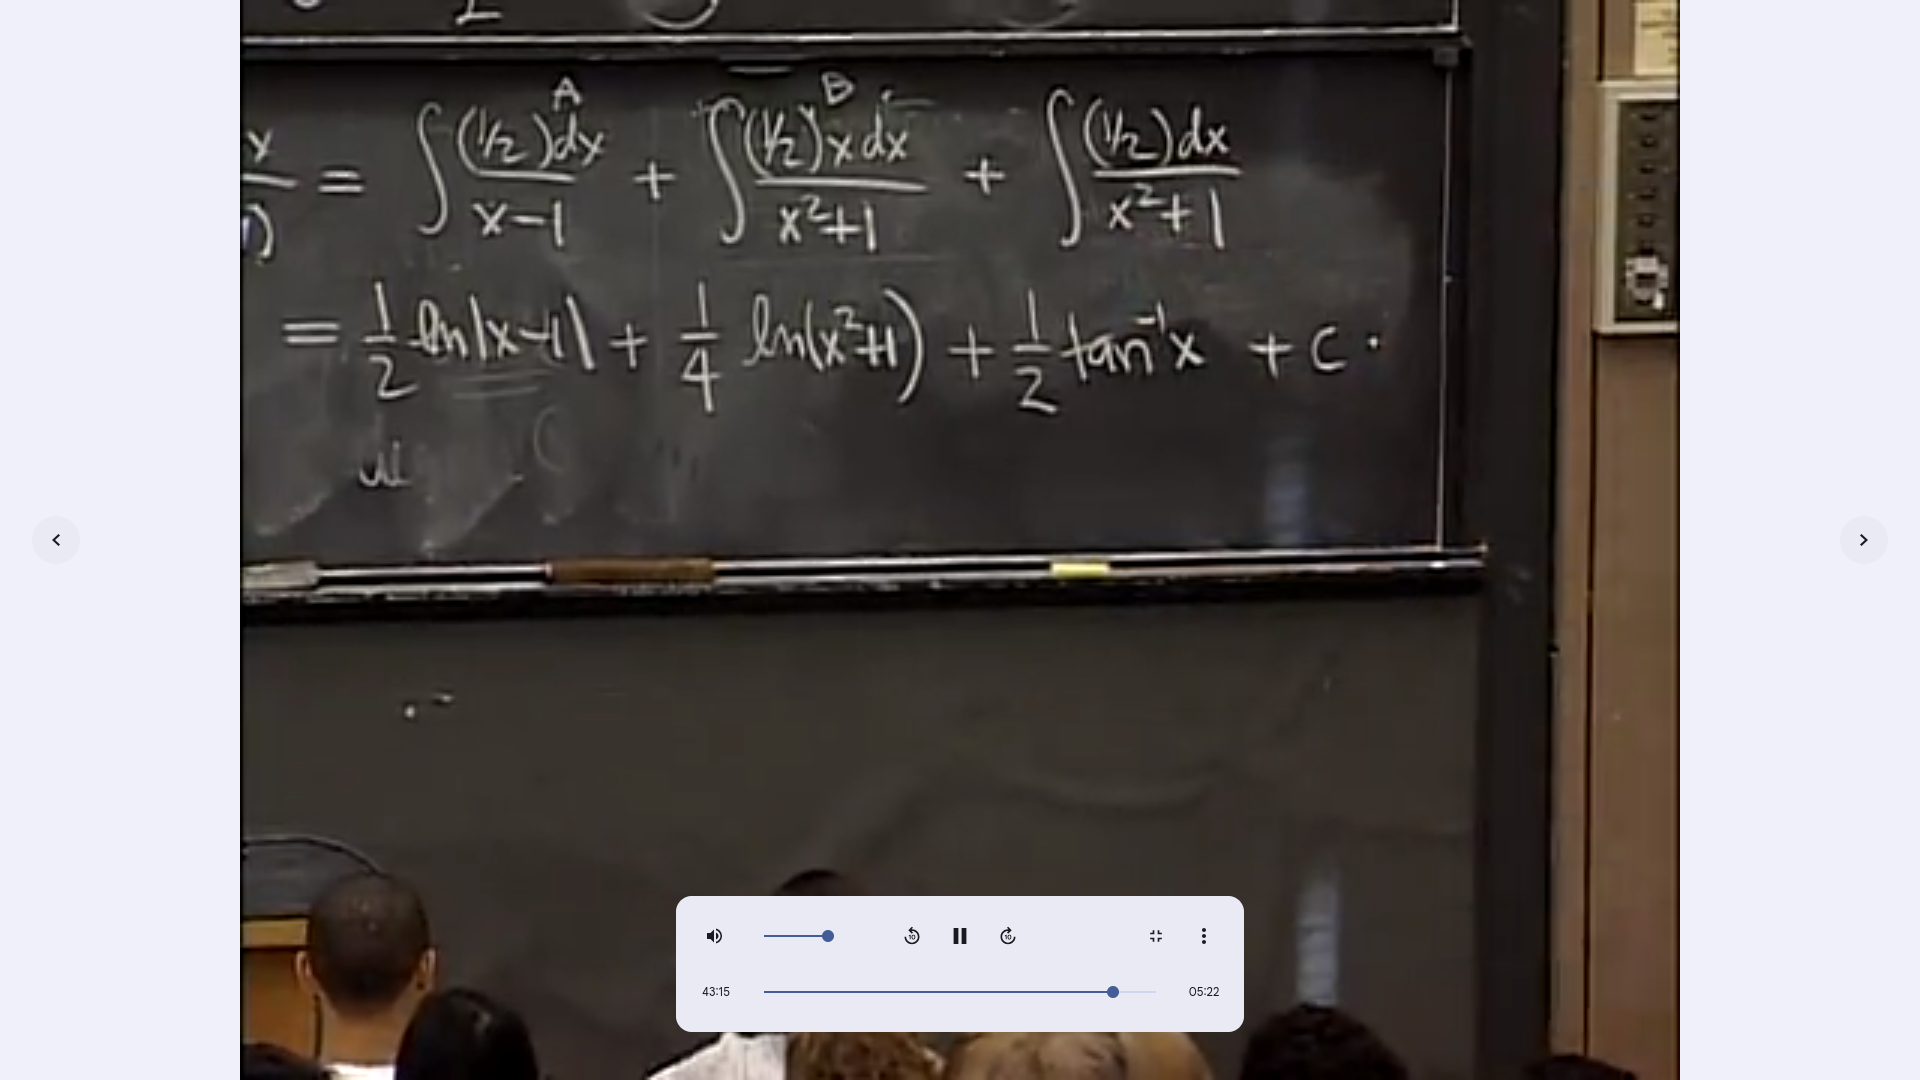 A B
x = ∫ (1/2)dx / x-1 + ∫ (1/2)x dx / x²+1 + ∫ (1/2)dx / x²+1
1)
= 1/2 ln|x-1| + 1/4 ln(x²+1) + 1/2 tan⁻¹x + c.
10 10
43:15 05:22